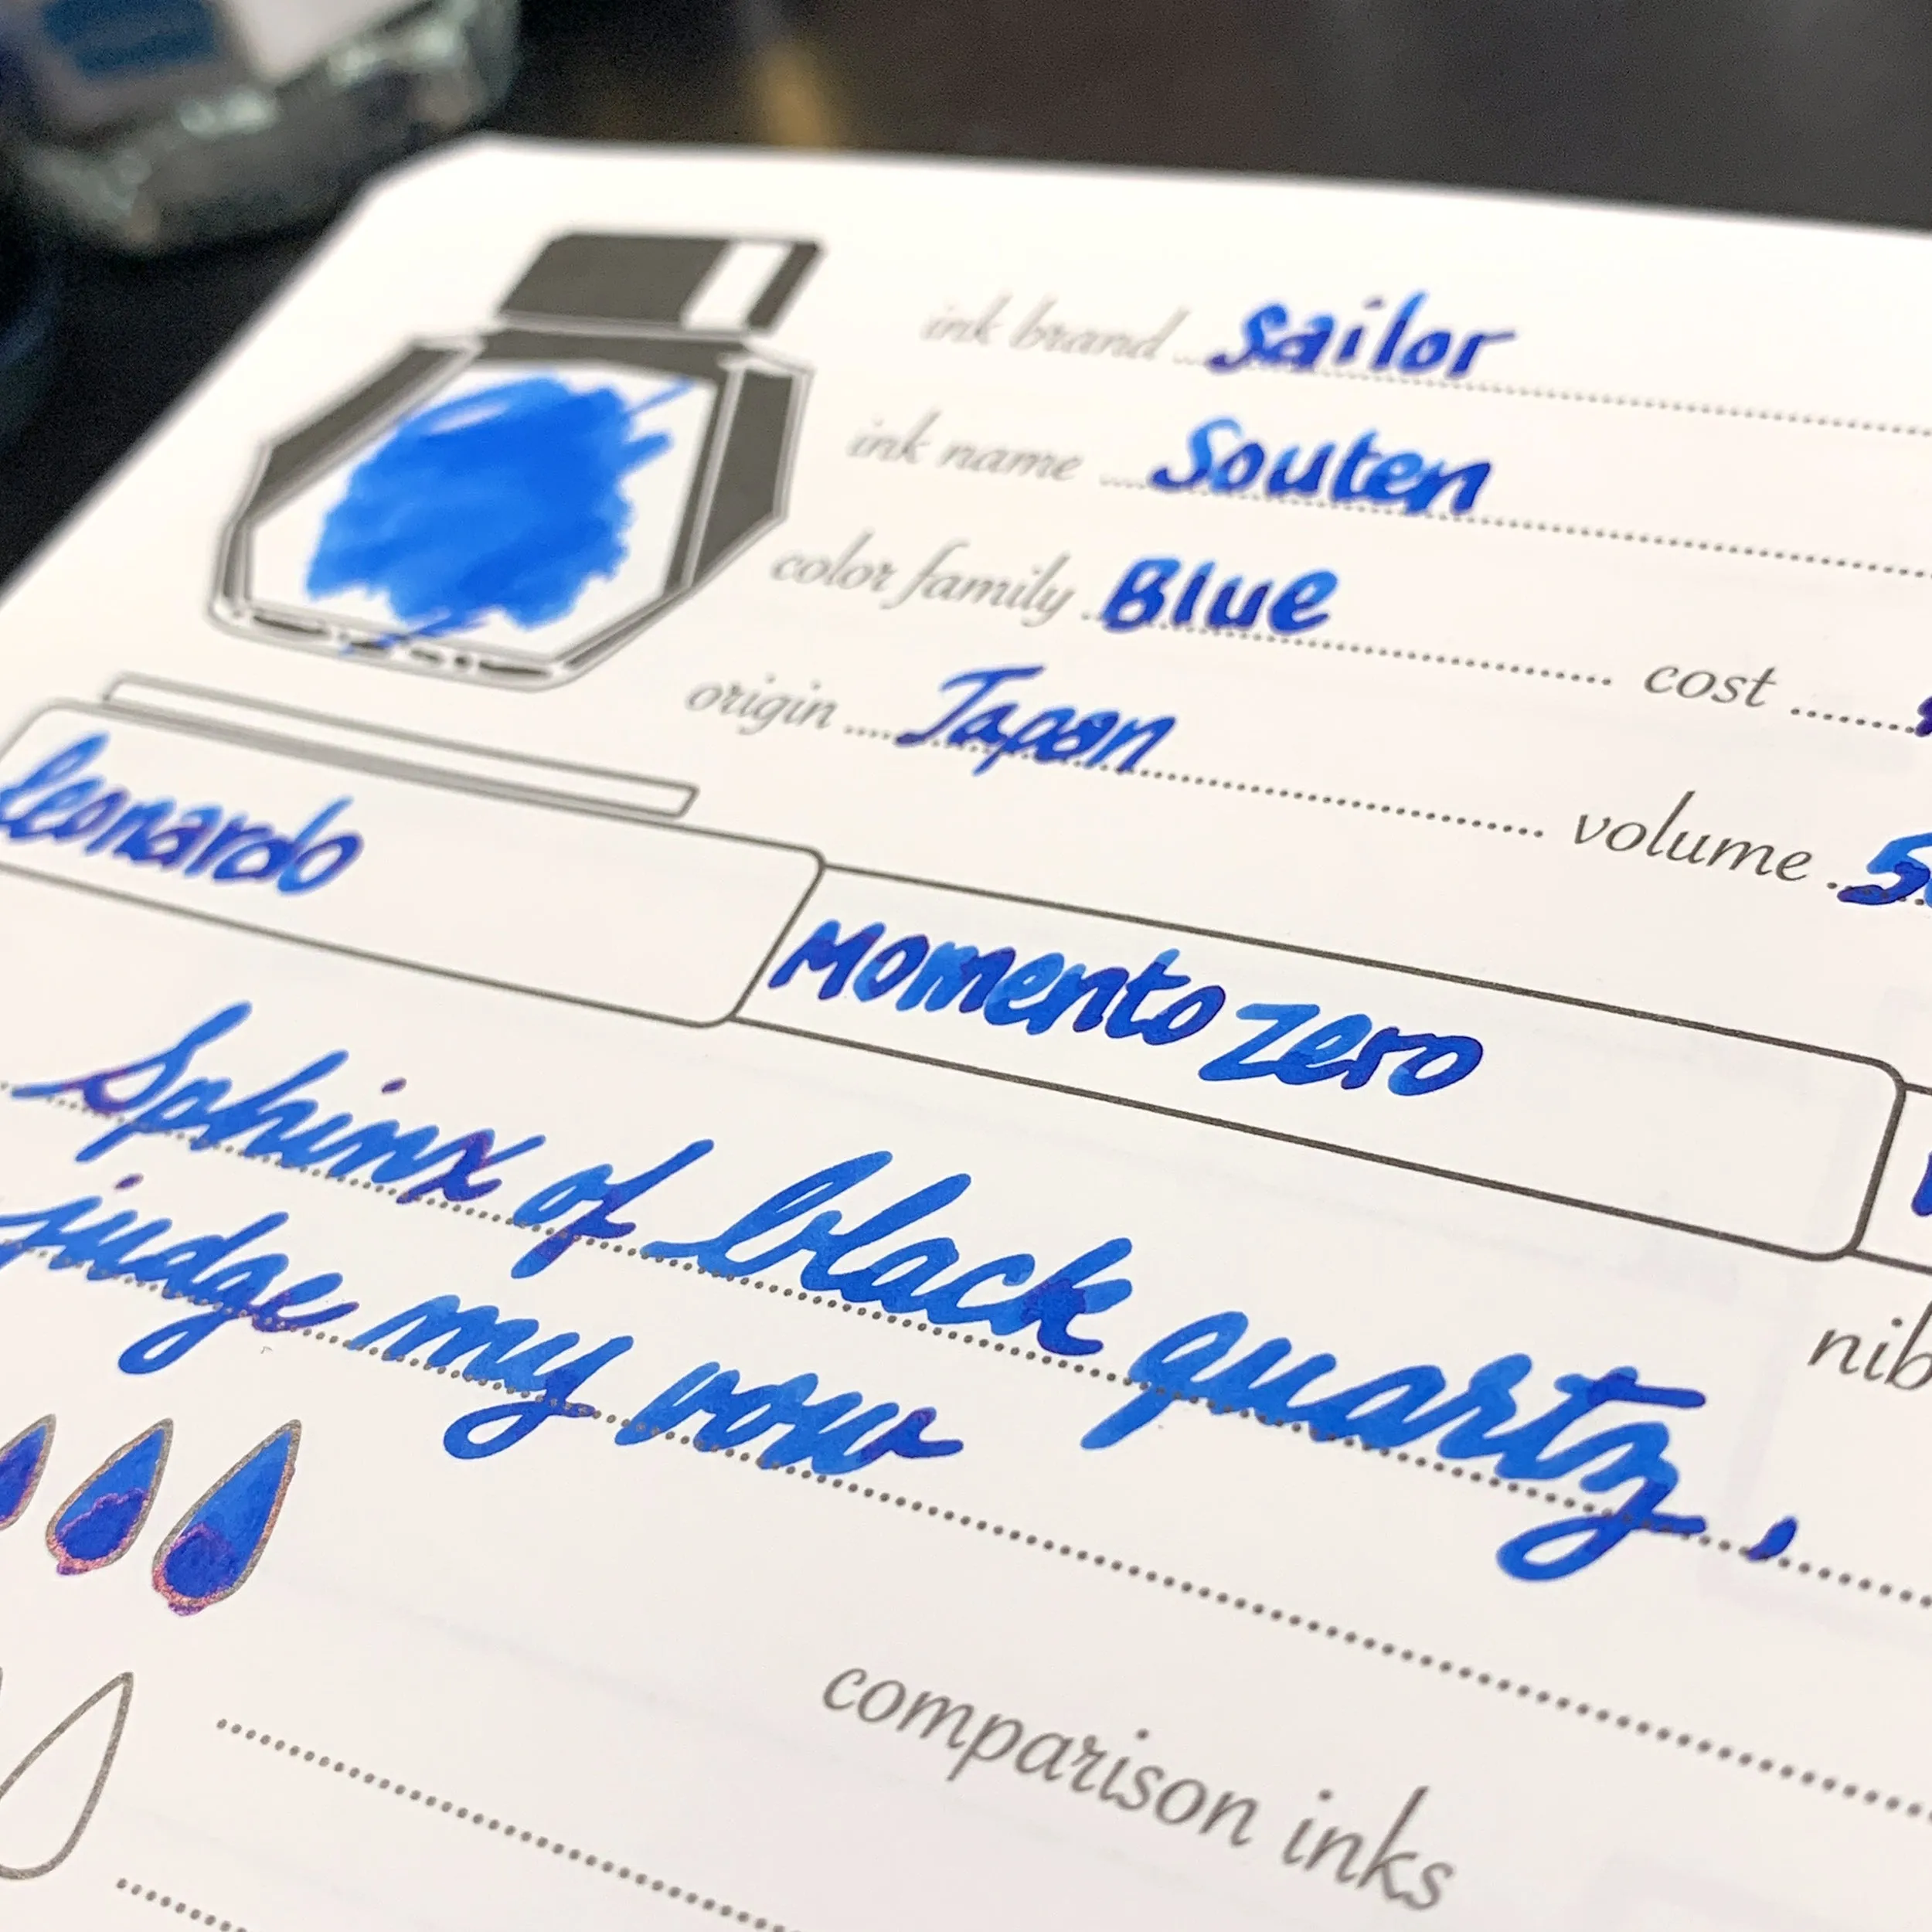 ink brand Sailor
ink name Souten
color family Blue cost
origin Japan volume
Leonardo Momento Zero
Sphinx of black quartz,
judge my vow
comparison inks